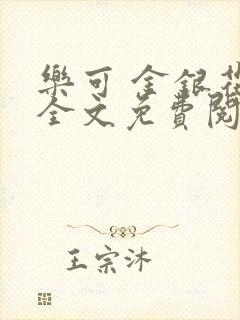 樂可 金銀花
全文免費閱
王宗沐